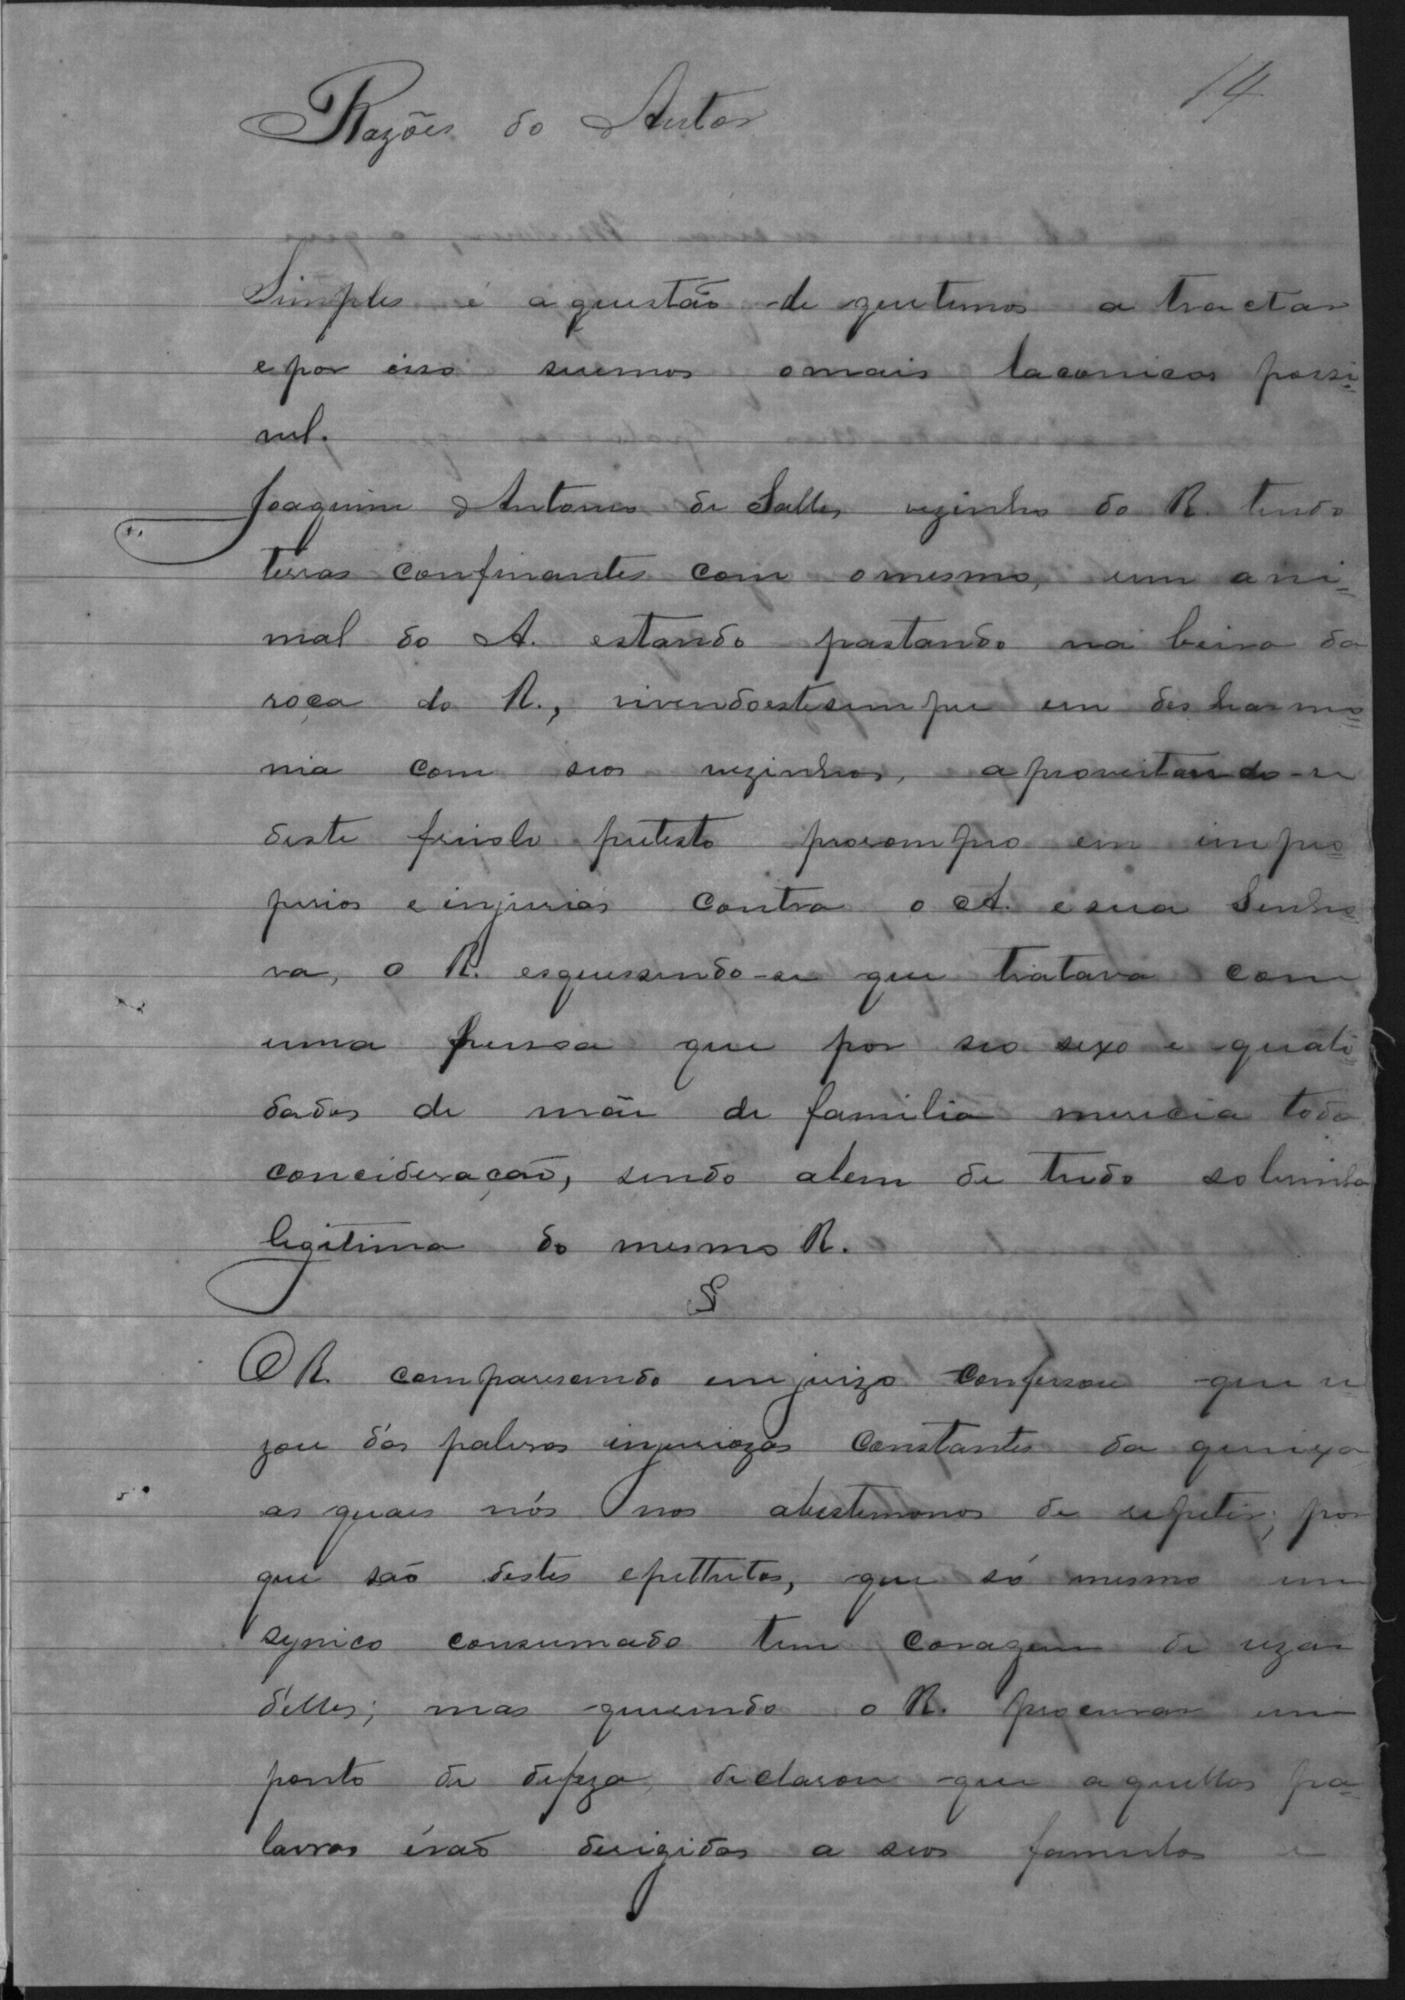 14
Razões do Autor
Simples é a questão de que temos a tractar
e por eiso seremos o mais laconicos possi-
vel.
Joaquim Antonio de Salles vezinho do R. tendo
terras confinantes com o mesmo, um ani-
mal do A. estando pastando na beira da
roça do R., vivendo este sempre em desharmo-
nia com seos vezinhos, aproveitando-se
deste frivolo pretesto prorompro em impro-
perios e injurias contra o A. e sua Senho-
ra, o R. esquessendo-se que tratava com
uma pessoa que por seo sexo e quali-
dades de mãe de familia merecia toda
concideração, sendo alem de tudo sobrinha
legitima do mesmo R.
§
O R. comparesendo em juizo confessou que u
zou dás palvras injuriozas constantes da queixa
as quaes nós nos abestemonos de repetir; por
que são destes epitthetos, que só mesmo um
synico consumado tem coragem de uzar
délles; mas querendo o R. procurar um
ponto de defeza declarou que aquellas pa-
lavras érão derigidas a seos famulos e